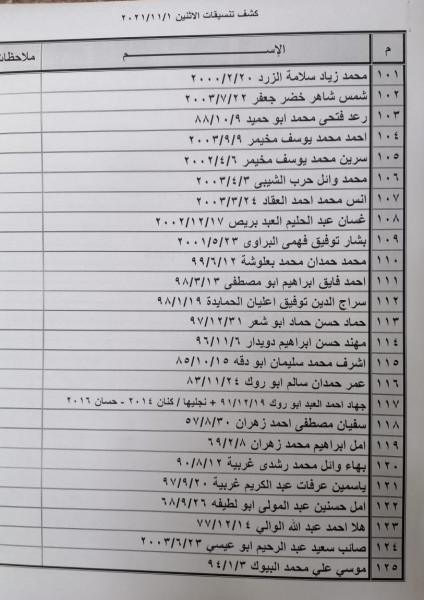 كشف تنسيقات الاثنين ٢٠٢١/١١/١
م الإســـم ملاحظات
١٠١ محمد زياد سلامة الزرد ٢٠٠٠/٢/٢٠
١٠٢ شمس شاهر خضر جعفر ٢٠٠٣/٧/٢٢
١٠٣ رعد فتحى محمد ابو حميد ٨٨/١٠/٩
١٠٤ احمد محمد يوسف مخيمر ٢٠٠٣/٩/٩
١٠٥ سرين محمد يوسف مخيمر ٢٠٠٢/٤/٦
١٠٦ محمد وائل حرب الشيبى ٢٠٠٣/٤/٣
١٠٧ انس محمد احمد العقاد ٢٠٠٣/٣/٢٤
١٠٨ غسان عبد الحليم العبد بريص ٢٠٠٢/١٢/١٧
١٠٩ بشار توفيق فهمى البراوى ٢٠٠١/٥/٢٣
١١٠ محمد حمدان محمد بعلوشة ٩٩/٦/١٢
١١١ احمد فايق ابراهيم ابو مصطفى ٩٨/٣/١٣
١١٢ سراج الدين توفيق اعليان الحمايدة ٩٨/١/١٩
١١٣ حماد حسن حماد ابو شعر ٩٧/١٢/٣١
١١٤ مهند حسن ابراهيم دويدار ٩٦/١١/٦
١١٥ اشرف محمد سليمان ابو دقه ٨٥/١٠/١٥
١١٦ عمر حمدان سالم ابو روك ٨٣/١١/٢٤
١١٧ جهاد احمد العبد ابو روك ٩١/١٢/١٩ + نجليها / كنان ٢٠١٤ - حسان ٢٠١٦
١١٨ سفيان مصطفى احمد زهران ٥٧/٨/٣٠
١١٩ امل ابراهيم محمد زهران ٦٩/٢/٨
١٢٠ بهاء وائل محمد رشدى غربية ٩٠/٨/١٢
١٢١ ياسمين عرفات عبد الكريم غربية ٩٧/٩/٢٠
١٢٢ امل حسنين عبد المولى ابو لطيفه ٦٨/٩/٢٦
١٢٣ هلا احمد عبد الله الوالي ٧٧/١٢/١٤
١٢٤ صائب سعيد عبد الرحيم ابو عيسي ٢٠٠٣/٦/٢٣
١٢٥ موسي علي محمد البيوك ٩٤/١/٣